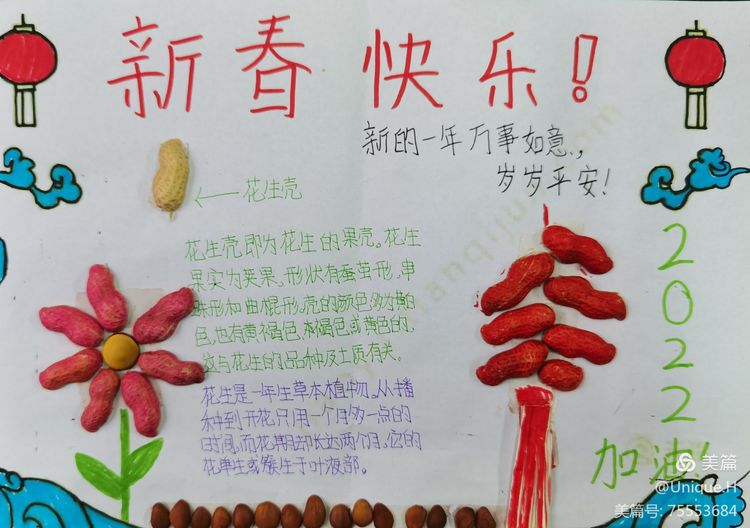 新春快乐!
新的一年万事如意,
岁岁平安!
花生壳
花生壳即为花生的果壳。花生
果实为荚果。形状有蚕茧形,串
珠形和曲棍形。壳的颜色多为黄白
色,也有黄褐色,褐色或黄色的,
这与花生的品种及土质有关。
花生是一年生草本植物。从播
种到开花只用一个月多一点的
时间,而花期却长达两个月。它的
花单生或簇生于叶液部。
2022
加油!
美篇
@Unique.H
美篇号: 75553684